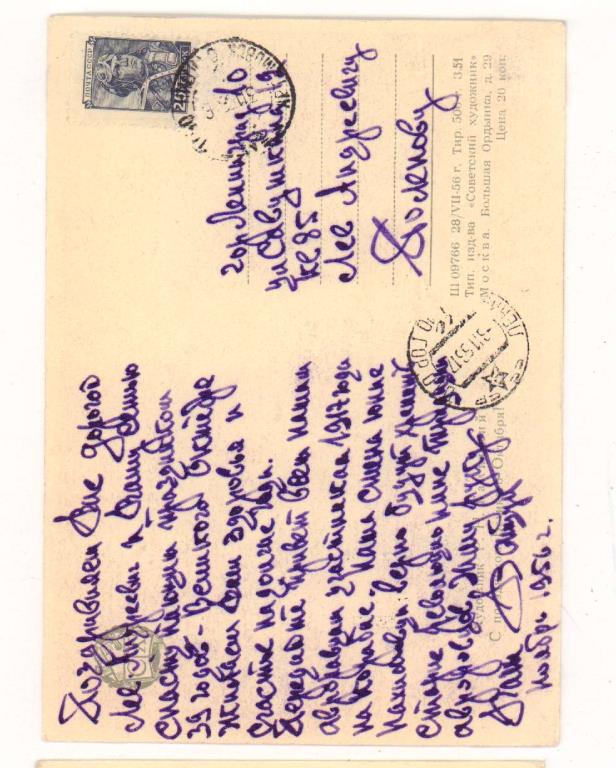 ПОЧТА СССР
25 КОП
гор Ленинград 10
ул Савушкина 15
кв 85
Лев Андреевичу
Поленову
Ш 09766 28/VII-56 г. Тир. 500 3.51
Тип. изд-ва «Советский художник»
Москва. Большая Ордынка, д. 29
Цена 20 коп.
Поздравляем Вас дорогой
Лев Андреевич и Вашу семью
счастливым праздником
39 годов - Великого Октября
Желаем Вам здоровья и
счастье на долгие
Передайте привет всем нашим
авроровцам участникам 1917 года
на корабле. Наш смена юные
Пашковцы верно будут хранить
старые революционные традиции
авроровцев. Жму руку
Ваш
ноябрь 1956 г.